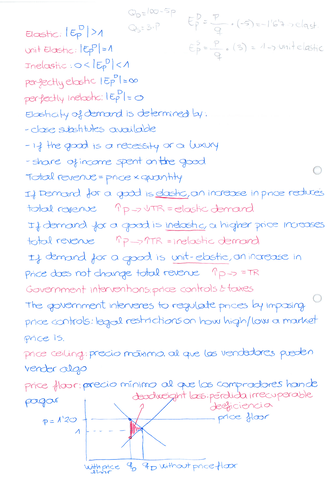 Elastic: |EpD|>1
QD=100-5p
EpD = p/q · (-5) = -1'67 → elast
unit Elastic: |EpD|=1
EpD = p/q · (5) = 1 → unit elastic
Inelastic: 0<|EpD|<1
perfectly elastic |EpD|=∞
perfectly inelastic |EpD|=0
Elasticity of demand is determined by:
- close substitutes available
- if the good is a necessity or a luxury
- share of income spent on the good
Total revenue = price × quantity
If Demand for a good is elastic, an increase in price reduces
total revenue ↑p→↓TR = elastic demand
If demand for a good is inelastic, a higher price increases
total revenue ↑p→↑TR = inelastic demand
If demand for a good is unit-elastic, an increase in
price does not change total revenue ↑p→ =TR
Government interventions: price controls & taxes
The government intervenes to regulate prices by imposing
price controls: legal restrictions on how high/low a market
price is.
price ceiling: precio máximo al que los vendedores pueden
vender algo
price floor: precio mínimo al que los compradores han de
pagar
deadweight loss: pérdida irrecuperable
de eficiencia
P=1'20
price floor
1
with price floor
q0
q0 without price floor